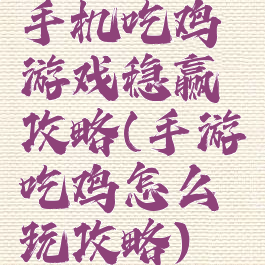 手机吃鸡
游戏稳赢
攻略(手游
吃鸡怎么
玩攻略)